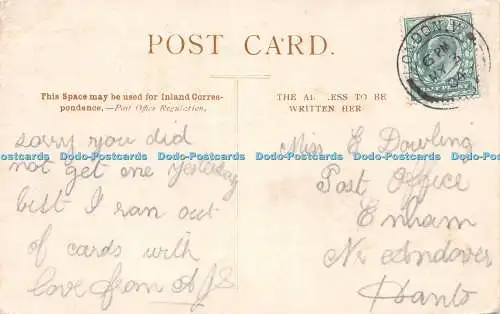 POST CARD.
LONDON W
6 PM
MY 3
04
This Space may be used for Inland Corres-
pondence.—Post Office Regulation.
THE AD ESS TO BE
WRITTEN HER
sorry you did
not get one yesterday
but I ran out
of cards with
love from A J S
Miss E Dowling
Post Office
Enham
Nr Andover
Hants
Dodo-Postcards Dodo-Postcards Dodo-Postcards Dodo-Postcards Dodo-Postcards